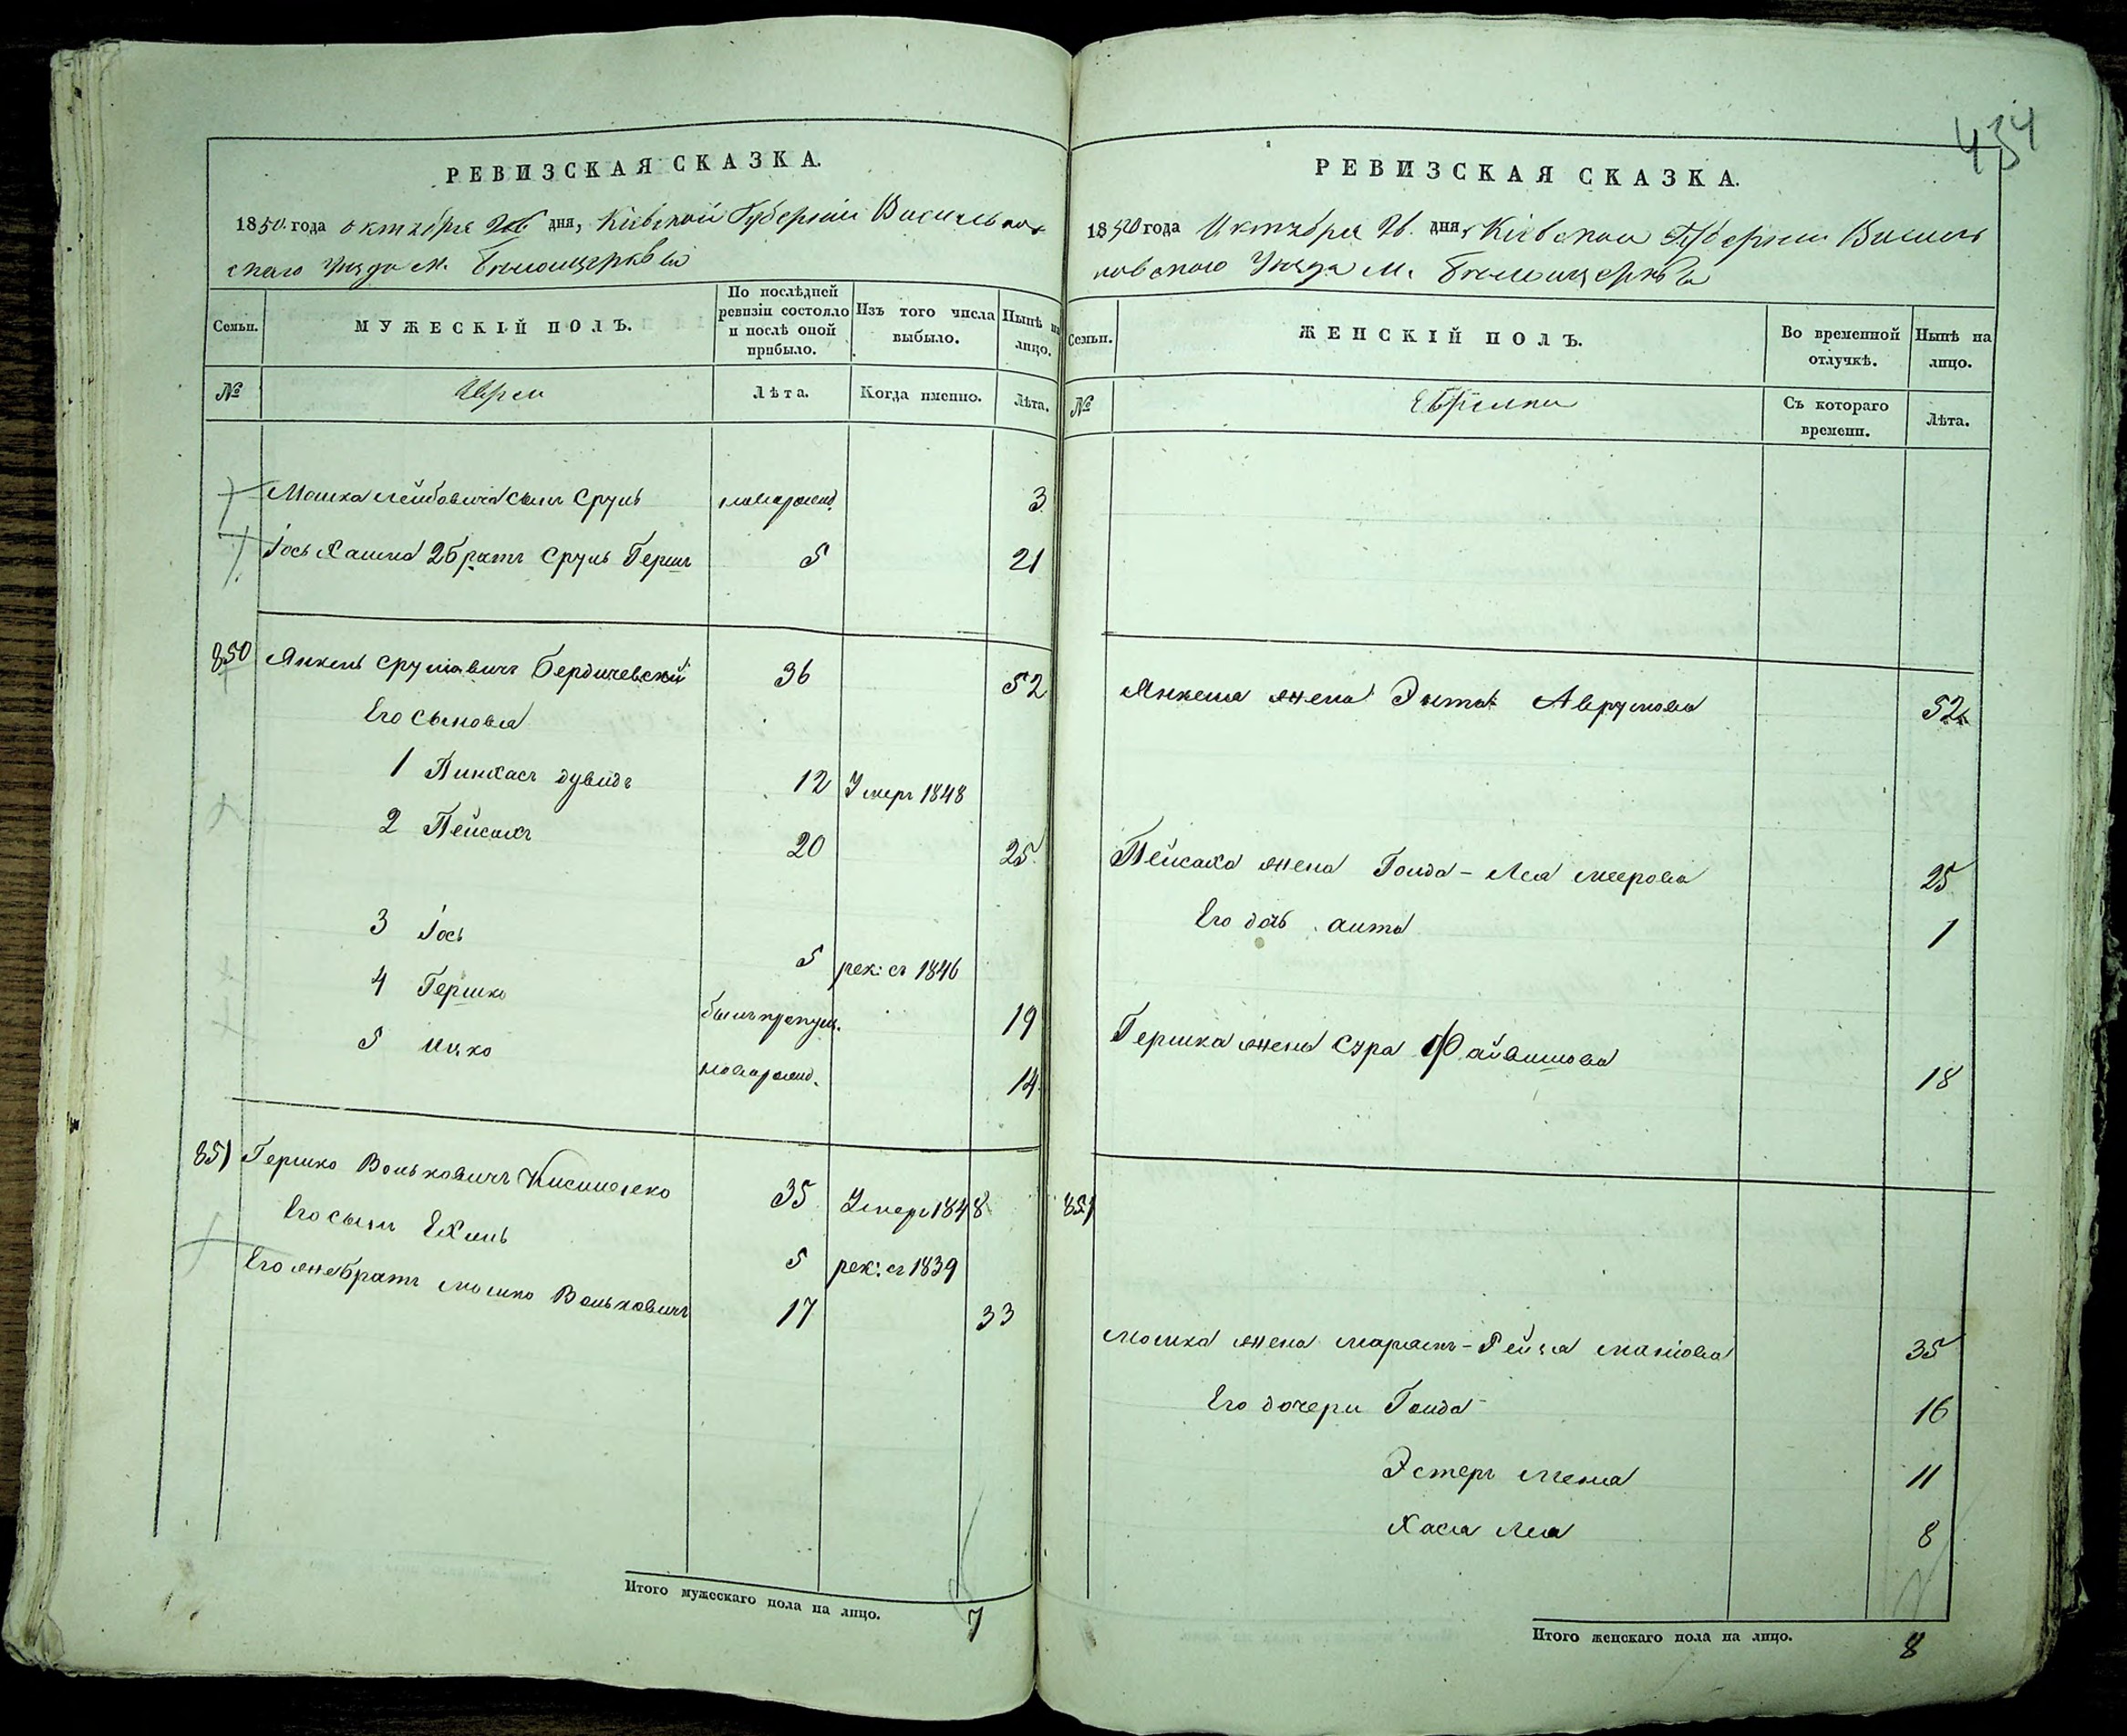 434
РЕВИЗСКАЯ СКАЗКА.
1850 года октября 26 дня, Кіевской Губерніи Васильков
скаго уезда м. Белоцерквы
Семьи.
МУЖЕСКІЙ ПОЛЪ.
По послѣдней ревизіи состояло и послѣ оной прибыло.
Изъ того числа выбыло.
Нынѣ на лицо.
№
Евреи
Лѣта.
Когда именно.
Лѣта.
Мошка Лейбовича сынъ Сруль новорожд. 3
Іось Хаима 2 братъ Сруль Герш 5 21
850 Янкель Срулевичъ Бердичевскій 36 52
Его сыновья
1 Пинхасъ Дувидъ 12 Умеръ 1848
2 Пейсахъ 20 25
3 Іось 5 рек: съ 1846
4 Гершко былъ пропущ. 19
5 Ицко новорожд. 14
851 Гершко Вольковичъ 35 Умеръ 1848
Его сынъ Ехиль 5 рек: съ 1839
Его же братъ Мошко Вольковичъ 17 33
Итого мужескаго пола на лицо. 7
РЕВИЗСКАЯ СКАЗКА.
1850 года Октября 26. дня, Кіевской Губерніи Василь
ковского Уезда м. Белоцерквы
Семьи.
ЖЕНСКІЙ ПОЛЪ.
Во временной отлучкѣ.
Нынѣ на лицо.
№
Еврейки
Съ котораго времени.
Лѣта.
Янкеля жена Аврумова 52
Пейсаха жена Голда-Лея Меерова 25
Его дочь 1
Гершка жена Сура Файвишова 18
851
Мошка жена Марьямъ-Рейзя 35
Его дочери Голда 16
Эстеръ 11
Хася Лея 8
Итого женскаго пола на лицо. 8